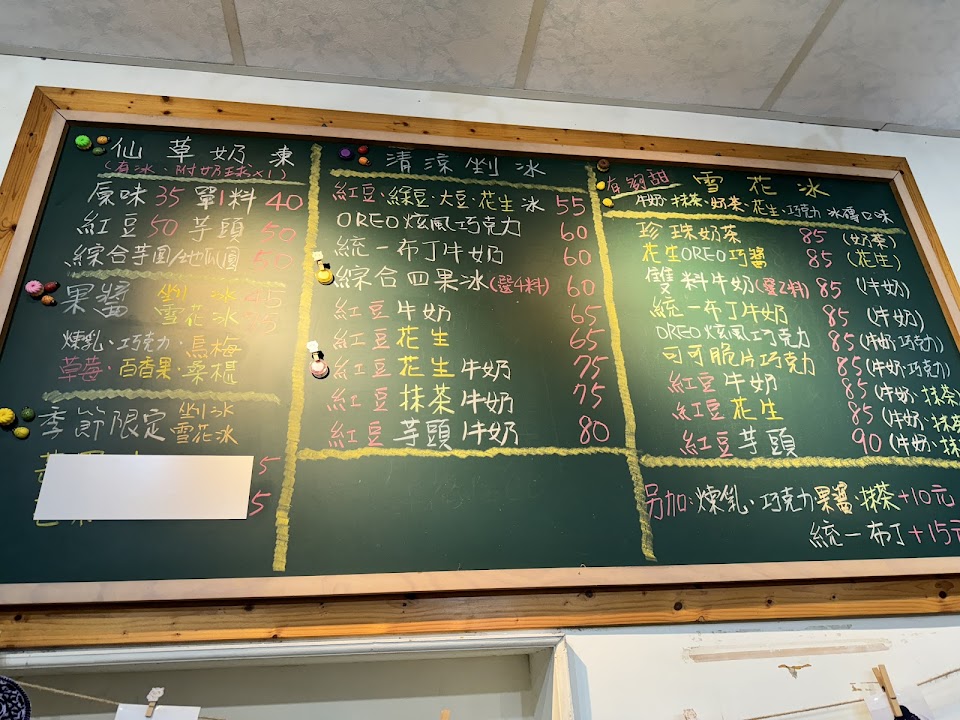 仙草奶凍
(有冰、附奶球x1)
原味 35 單1料 40
紅豆 50 芋頭 50
綜合芋圓/地瓜圓 50
果醬 剉冰 45
雪花冰 75
煉乳、巧克力、烏梅
草莓、百香果、桑椹
季節限定 剉冰
雪花冰
5
5
清涼剉冰
紅豆、綠豆、大豆、花生冰 55
OREO炫風巧克力 60
統一布丁牛奶 60
綜合四果冰(選4料) 60
紅豆牛奶 65
紅豆花生 65
紅豆花生牛奶 75
紅豆抹茶牛奶 75
紅豆芋頭牛奶 80
有夠甜 雪花冰
牛奶、抹茶、奶茶、花生、巧克力 冰磚口味
珍珠奶茶 85 (奶茶)
花生OREO巧醬 85 (花生)
雙料牛奶(選2料) 85 (牛奶)
統一布丁牛奶 85 (牛奶)
OREO炫風巧克力 85 (牛奶、巧克力)
可可脆片巧克力 85 (牛奶、巧克力)
紅豆牛奶 85 (牛奶、抹茶)
紅豆花生 85 (牛奶、抹茶
紅豆芋頭 90 (牛奶、抹
另加:煉乳、巧克力果醬、抹茶+10元
統一布丁+15元